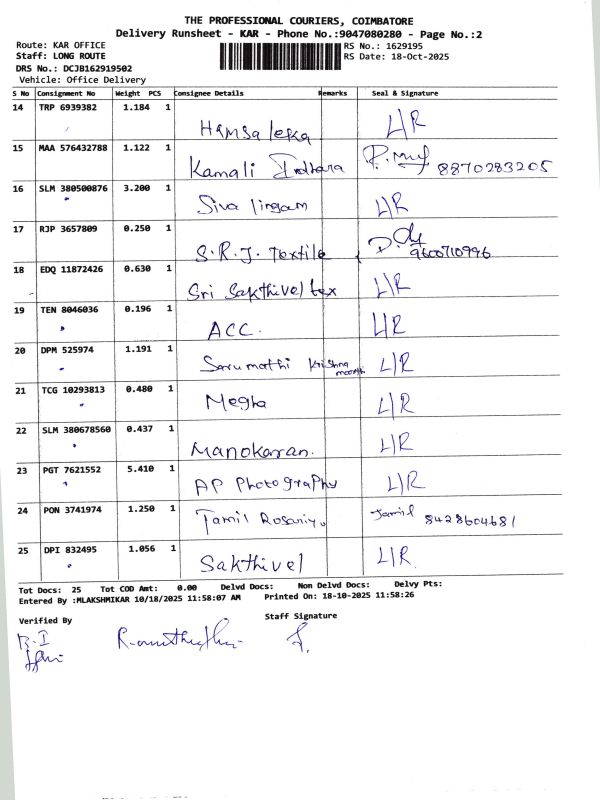 THE PROFESSIONAL COURIERS, COIMBATORE
Delivery Runsheet - KAR - Phone No.:9047080280 - Page No.:2
Route: KAR OFFICE RS No.: 1629195
Staff: LONG ROUTE RS Date: 18-Oct-2025
DRS No.: DCJB162919502
Vehicle: Office Delivery
S No Consignment No Weight PCS Consignee Details Remarks Seal & Signature
14 TRP 6939382 1.184 1
Hamsa leka L/R
15 MAA 576432788 1.122 1
Kamali Indhara 8870283205
16 SLM 380500876 3.200 1
Siva lingam L/R
17 RJP 3657809 0.250 1
S.R.J. Textile 9600710996
18 EDQ 11872426 0.630 1
Sri Sakthivel tex L/R
19 TEN 8046036 0.196 1
ACC. L/R
20 DPM 525974 1.191 1
Sarumathi Krishna moorthi L/R
21 TCG 10293813 0.480 1
Megha L/R
22 SLM 380678560 0.437 1
Manokaran. L/R
23 PGT 7621552 5.410 1
AP Photography L/R
24 PON 3741974 1.250 1
Tamil Rosariyo 8428604681
25 DPI 832495 1.056 1
Sakthivel L/R.
Tot Docs: 25 Tot COD Amt: 0.00 Delvd Docs: Non Delvd Docs: Delvy Pts:
Entered By :MLAKSHMIKAR 10/18/2025 11:58:07 AM Printed On: 18-10-2025 11:58:26
Verified By Staff Signature